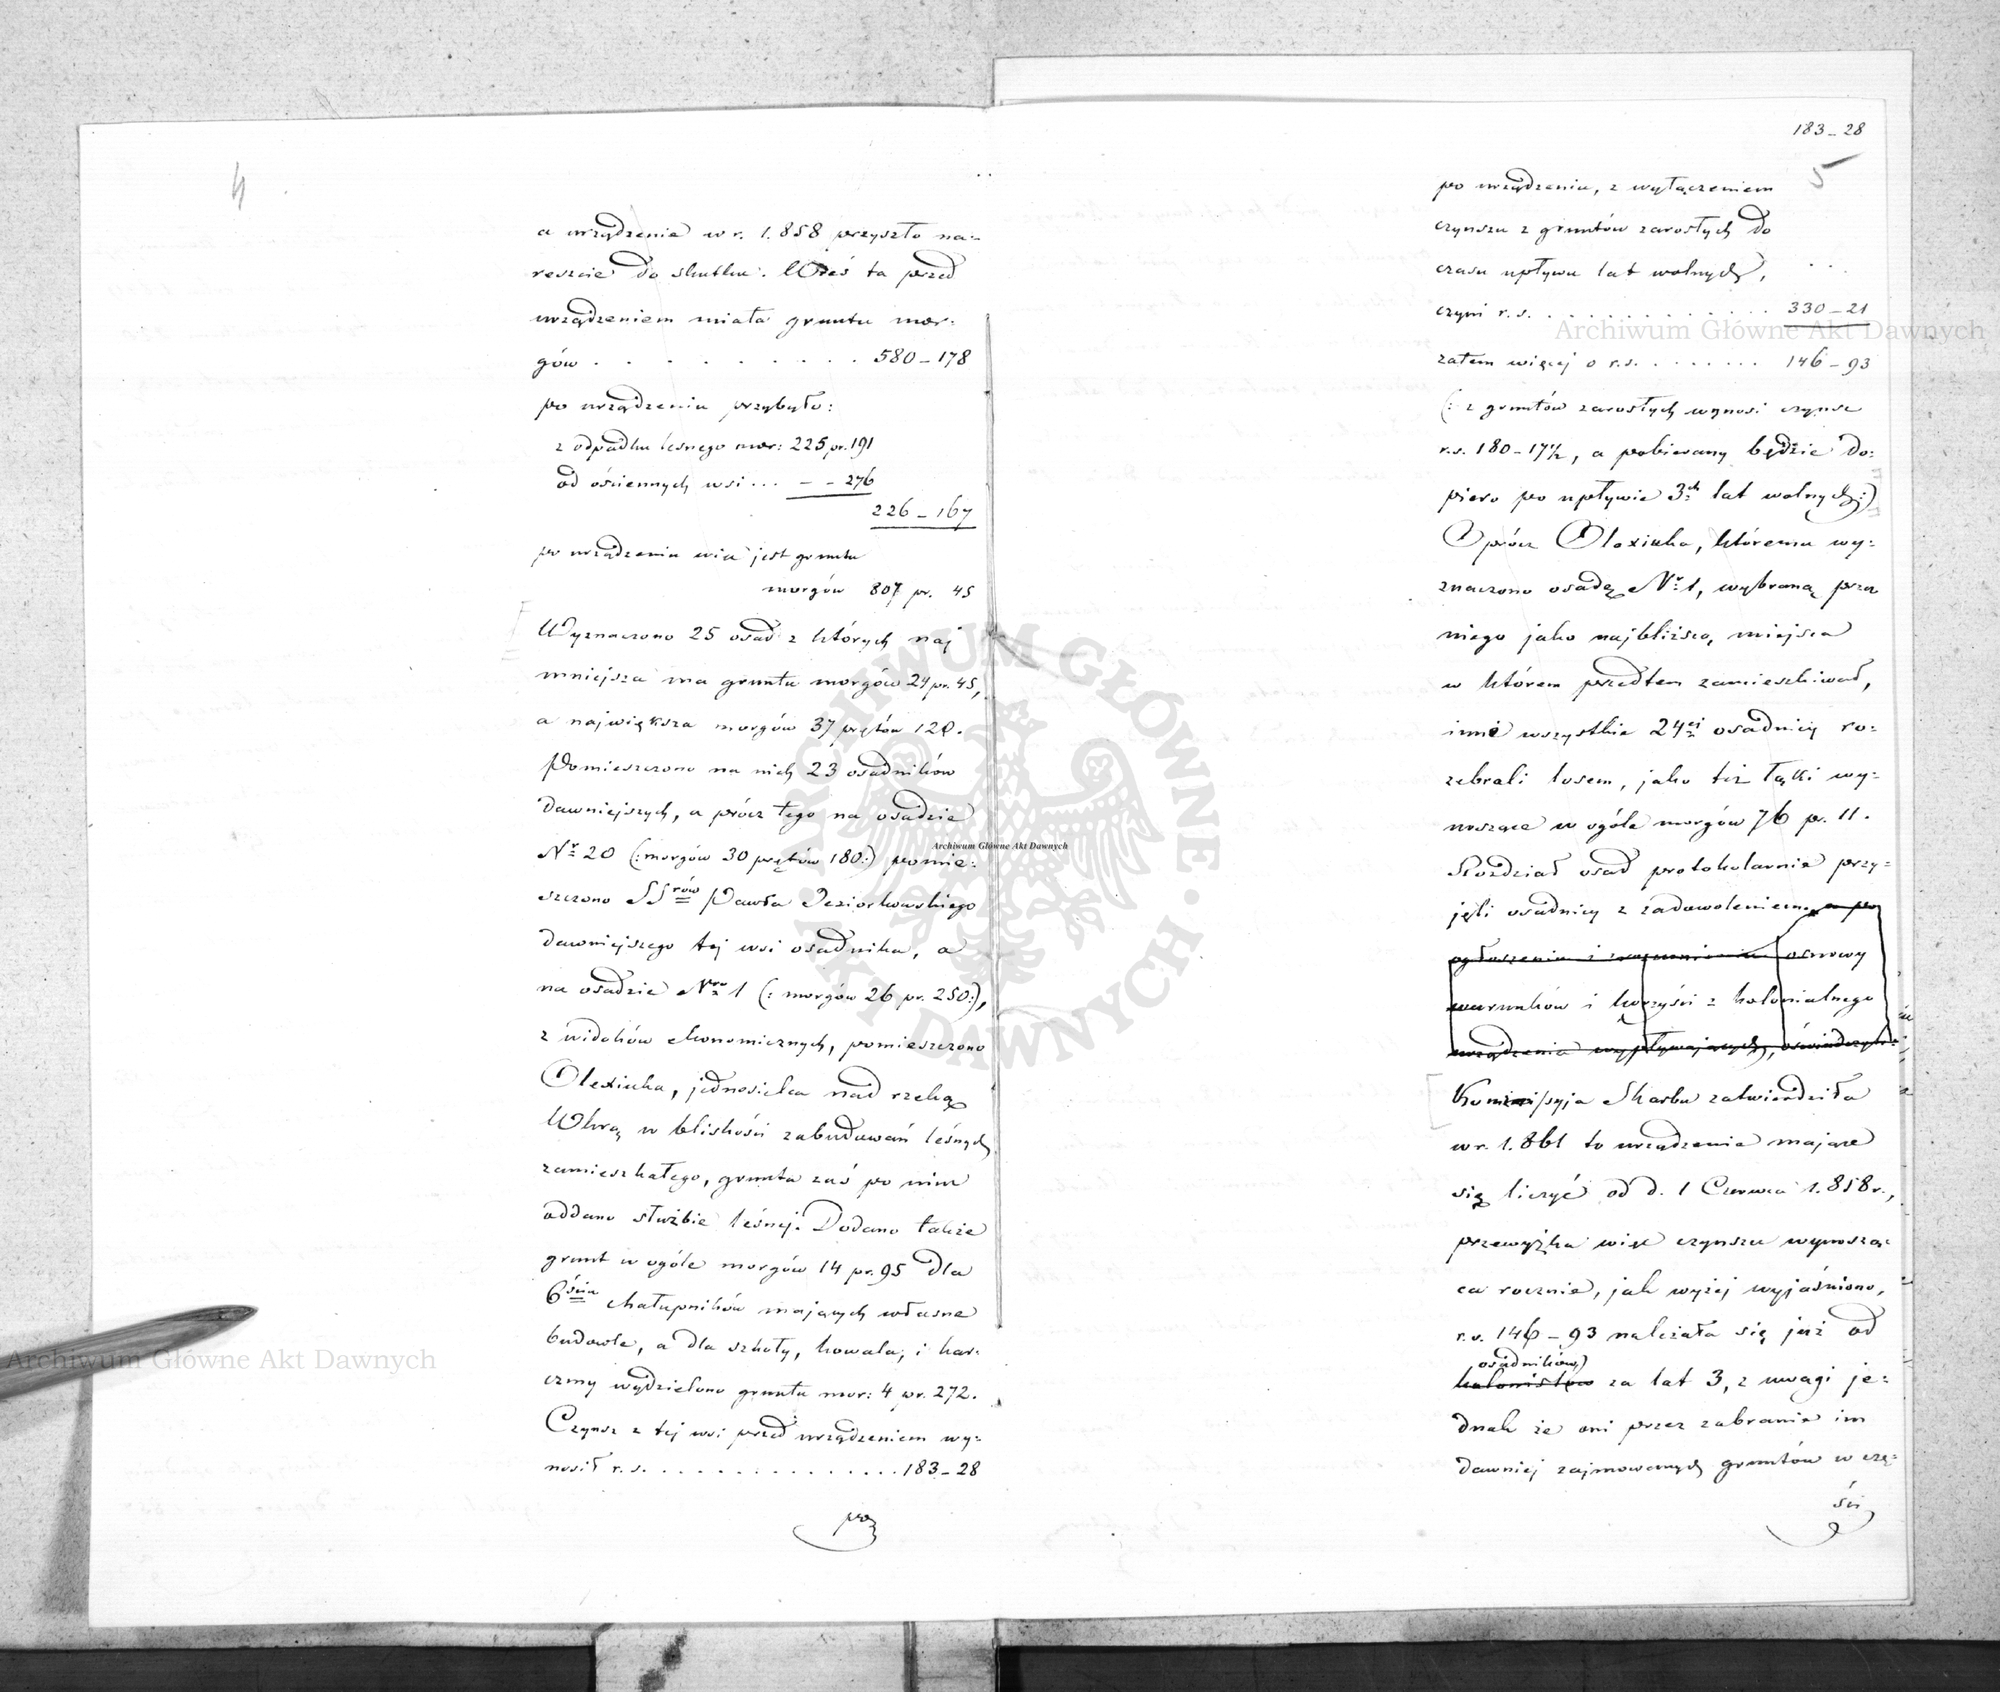 4
a urządzenie w r. 1.858 przyszło na-
reszcie do skutku. Wieś ta przed
urządzeniem miała gruntu mor-
gów . . . . . . . . . 580 – 178
po urządzeniu przybyło:
z odpadku leśnego mor: 225 pr. 191
od ościennych wsi . . . – – 276
226 – 167
po urządzeniu wieś jest gruntu
morgów 807 pr. 45
Wyznaczono 25 osad z których naj
mniejsza ma gruntu morgów 24 pr. 45,
a największa morgów 37 prętów 120.
Pomieszczono na nich 23 osadników
dawniejszych, a prócz tego na osadzie
Nr 20 (: morgów 30 prętów 180:) pomie-
szczono SSrów Pawła Jeziorkowskiego
dawniejszego tej wsi osadnika, a
na osadzie Nro 1 (: morgów 26 pr. 250:),
z widoków ekonomicznych, pomieszczono
Olexiuka, jednosielca nad rzeką
Wkrą w bliskości zabudowań leśnych
zamieszkałego, grunta zaś po nim
oddano służbie leśnej. Dodano także
grunt w ogóle morgów 14 pr. 95 dla
6ściu chałupników mających własne
budowle, a dla szkoły, kowala, i kar-
czmy wydzielono gruntu mor: 4 pr. 272.
Czynsz z tej wsi przed urządzeniem wy-
nosił r. s. . . . . . . . . . . . . . . 183 – 28
po
183 – 28
5
po urządzeniu, z wyłączeniem
czynszu z gruntów zarosłych do
czasu upływu lat wolnych,
czyni r. s. . . . . . . . . . . . . . 330 – 21
zatem więcej o r.s. . . . . . . . 146 – 93
(: z gruntów zarosłych wynosi czynsz
r.s. 180 – 17½, a pobierany będzie do-
piero po upływie 3ch lat wolnych:)
Oprócz Olexiuka, któremu wy-
znaczono osadę Nr 1, wybraną przez
niego jako najbliższą miejsca
w którem przedtem zamieszkiwał,
inne wszystkie 24ej osadnicy ro-
zebrali losem, jako też łąki wy-
noszące w ogóle morgów 76 pr. 11.
Rozdział osad protokolarnie przy-
jęli osadnicy z zadowoleniem, a po
ogłoszeniu i zrozumieniu osnowy
warunków i korzyści z kolonialnego
urządzenia wypływających, oświadczyli:
Kommissyja Skarbu zatwierdziła
w r. 1.861 to urządzenie mające
się liczyć od d. 1 Czerwca 1.858 r.,
przewyżka więc czynszu wynoszą-
ca rocznie, jak wyżej wyjaśniono,
r. s. 146 – 93 należała się już od
osadników
kolonistów za lat 3, z uwagi je-
dnak że oni przez zabranie im
dawniej zajmowanych gruntów w czę-
ści
Archiwum Główne Akt Dawnych
Archiwum Główne Akt Dawnych
Archiwum Główne Akt Dawnych
ARCHIWUM GŁÓWNE • AKT DAWNYCH •